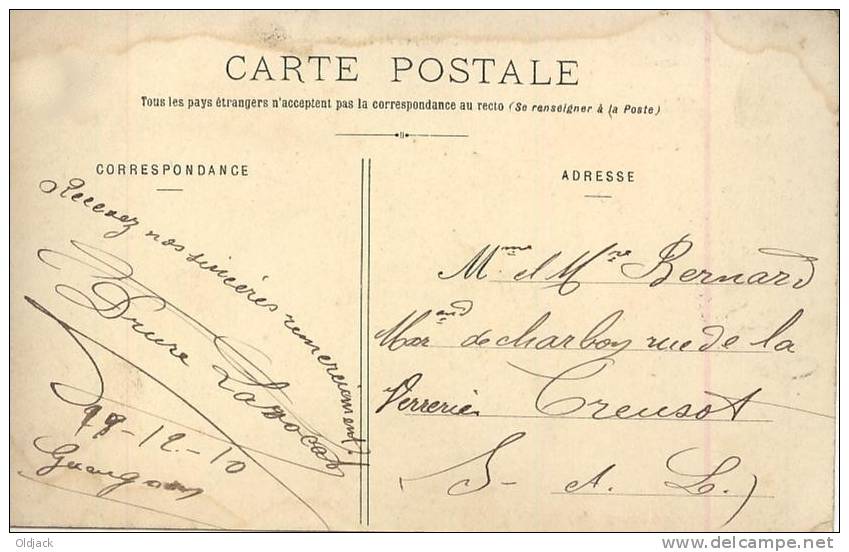 CARTE POSTALE
Tous les pays étrangers n'acceptent pas la correspondance au recto (Se renseigner à la Poste)
CORRESPONDANCE
Recevez nos sincères remerciement!
Drure Lavocat
28-12-10
ADRESSE
Mme et Mr Bernard
Marand de charbon rue de la
Verrerie Creusot
S- et L.)
Oldjack
delcampe.net